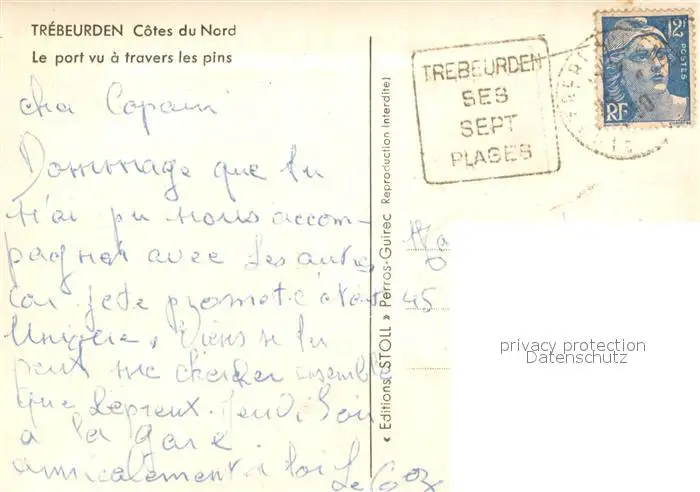 TRÉBEURDEN Côtes du Nord
Le port vu à travers les pins
cher Copain
Dommage que tu
n'ai pu nous accom-
pagner avec les autres
car je te promet c'était
Unique. Viens si tu
peut me chercher ensemble
que Lepreux. Jeudi Soir
à la gare.
amicalement à toi
« Editions STOLL » Perros-Guirec Reproduction Interdite)
TREBEURDEN
SES
SEPT
PLAGES
12F
POSTES
RF
45
privacy protection
Datenschutz